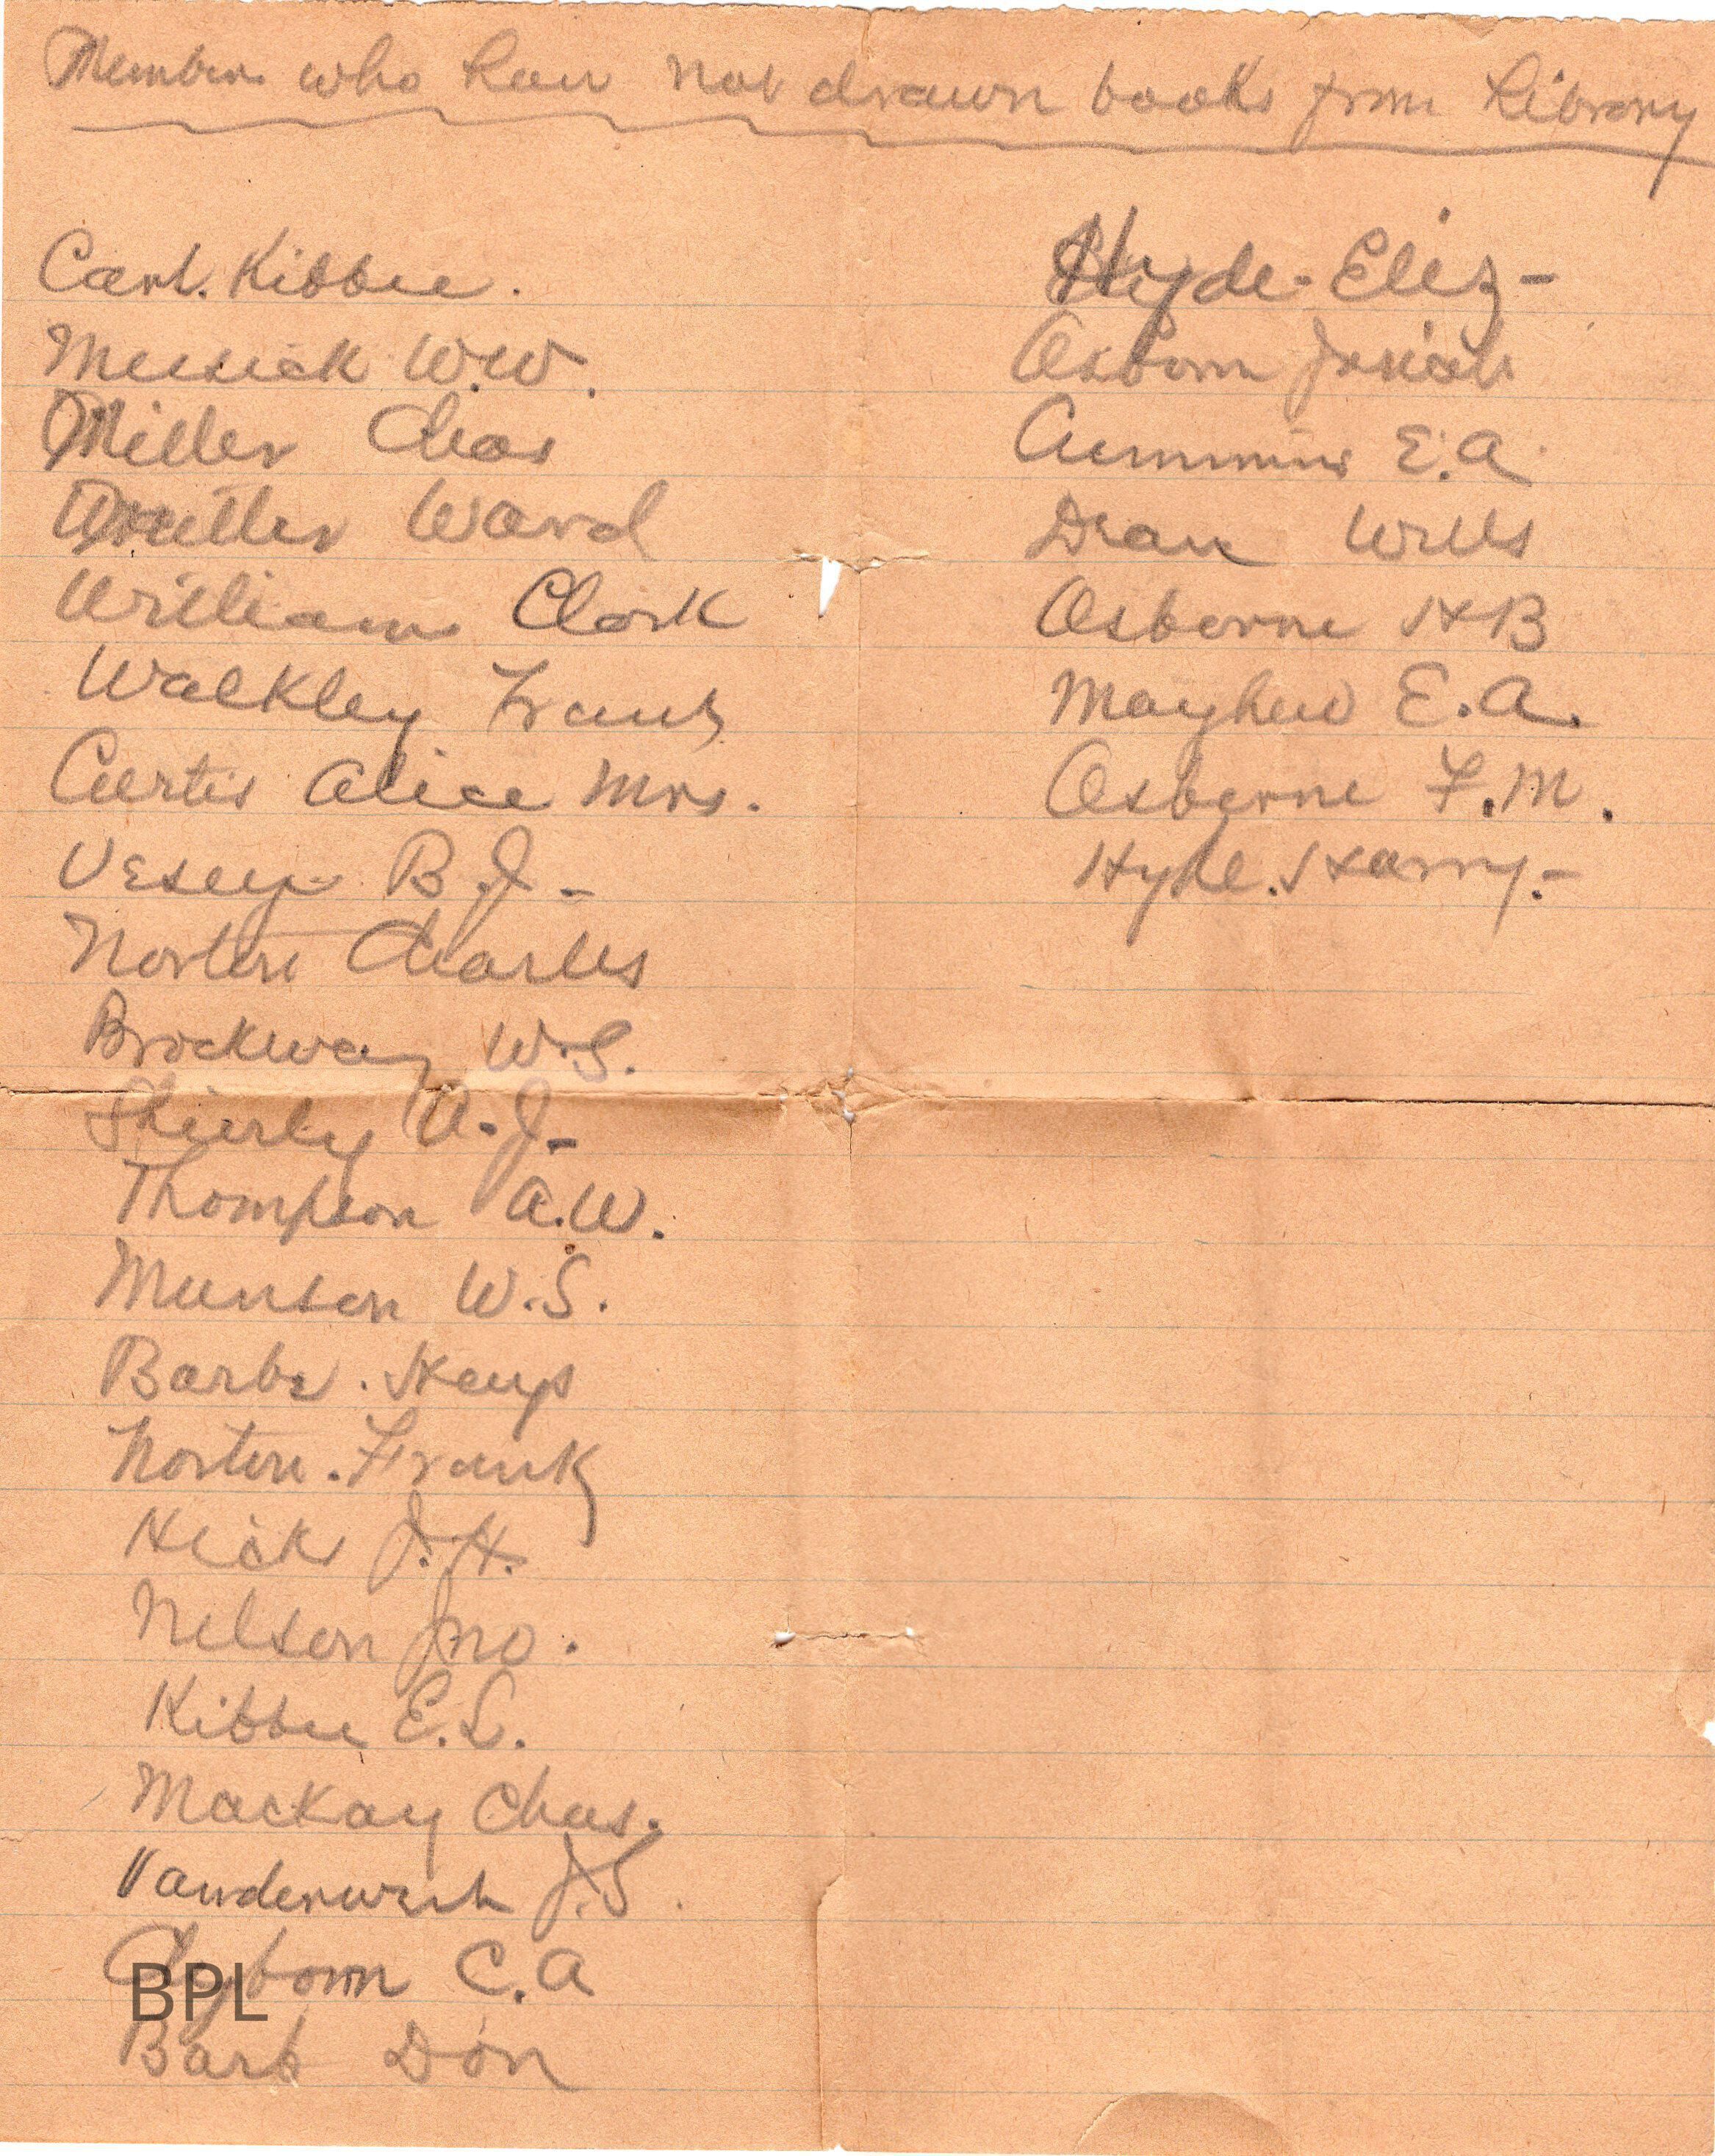 Members who have not drawn books from Library
Carl. Kibbee.
Messick W.W.
Miller Chas
Ward
William Clark
Walkley Frank
Curtis Alice Mrs.
Vesey B.J-
Norton Charles
Brockway W.S.
Shierly A.J-
Thompson A.W.
Munson W.S.
Barbe. Hays
Norton. Frank
J.H.
Nelson Jno.
Kibbee E.L.
MacKay Chas.
J.S.
Clyborn C.A
Barb Don
Hyde-Eliz-
Osborn Josiah
Cummins E.A.
Dean Wills
Osborne HB
Mayhew E.A.
Osborne F.M.
Hyde. Harry.-
BPL